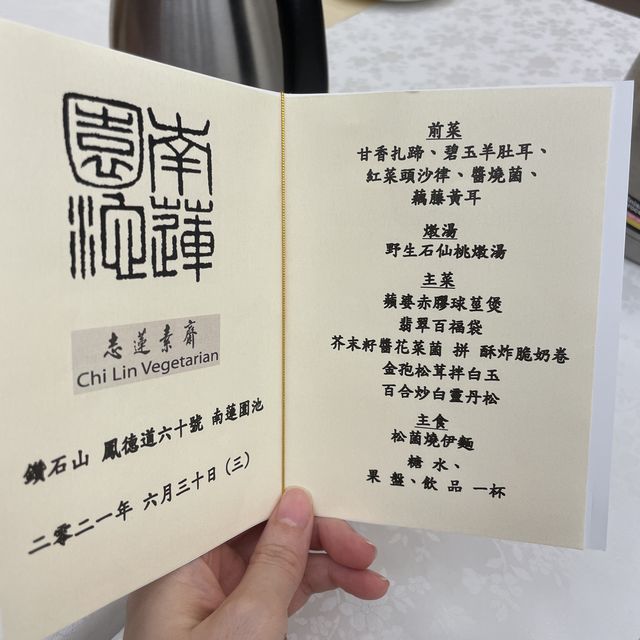 南蓮
園池
志蓮素齋
Chi Lin Vegetarian
鑽石山 鳳德道六十號 南蓮園池
二零二一年 六月三十日 (三)
前菜
甘香扎蹄、碧玉羊肚耳、
紅菜頭沙律、醬燒菌、
藕藤黃耳
燉湯
野生石仙桃燉湯
主菜
蘋婆赤膠球荳煲
翡翠百福袋
芥末籽醬花菜菌 拼 酥炸脆奶卷
金孢松茸拌白玉
百合炒白靈丹松
主食
松菌燒伊麵
糖 水、
果 盤、飲 品 一杯